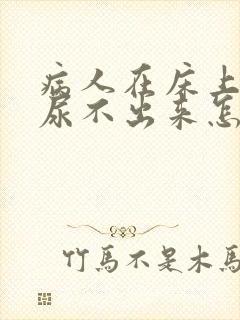 病人在床上
尿不出来怎
竹馬不是木馬